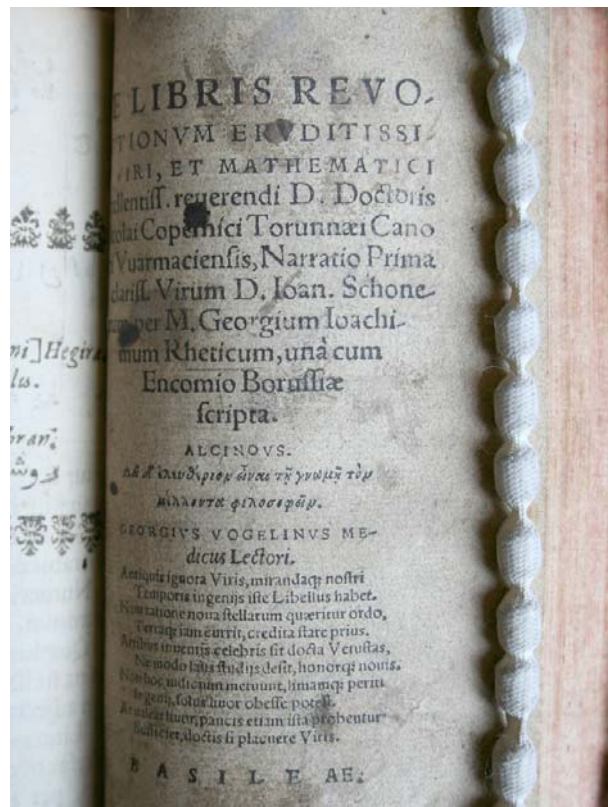 E LIBRIS REVO-
TIONVM ERVDITISSI-
VIRI, ET MATHEMATICI
ellentiss. reuerendi D. Doctoris
colai Copernici Torunnæi Cano
Vuarmaciensis, Narratio Prima
clariss. Virum D. Ioan. Schone-
per M. Georgium Ioachi-
mum Rheticum, unà cum
Encomio Borussiæ
scripta.
ALCINOVS.
Δεῖ δ' ἐλευθέριον εἶναι τῇ γνώμῃ τὸν
μέλλοντα φιλοσοφεῖν.
GEORGIVS VOGELINVS ME-
dicus Lectori.
Antiquis ignota Viris, mirandaq; nostri
Temporis ingenijs iste Libellus habet.
Nam ratione noua stellarum quæritur ordo,
Terraq; iam currit, credita stare prius.
Artibus inuentis celebris sit docta Vetustas,
Ne modo laus studijs desit, honorq; nouis.
Non hoc iudicium metuunt, limamq; periti
Ingenij, solus liuor obesse potest.
At ualeat liuor, paucis etiam ista probentur
Sufficiet, doctis si placuere Viris.
BASILEAE.
ni] Hegira
lus.